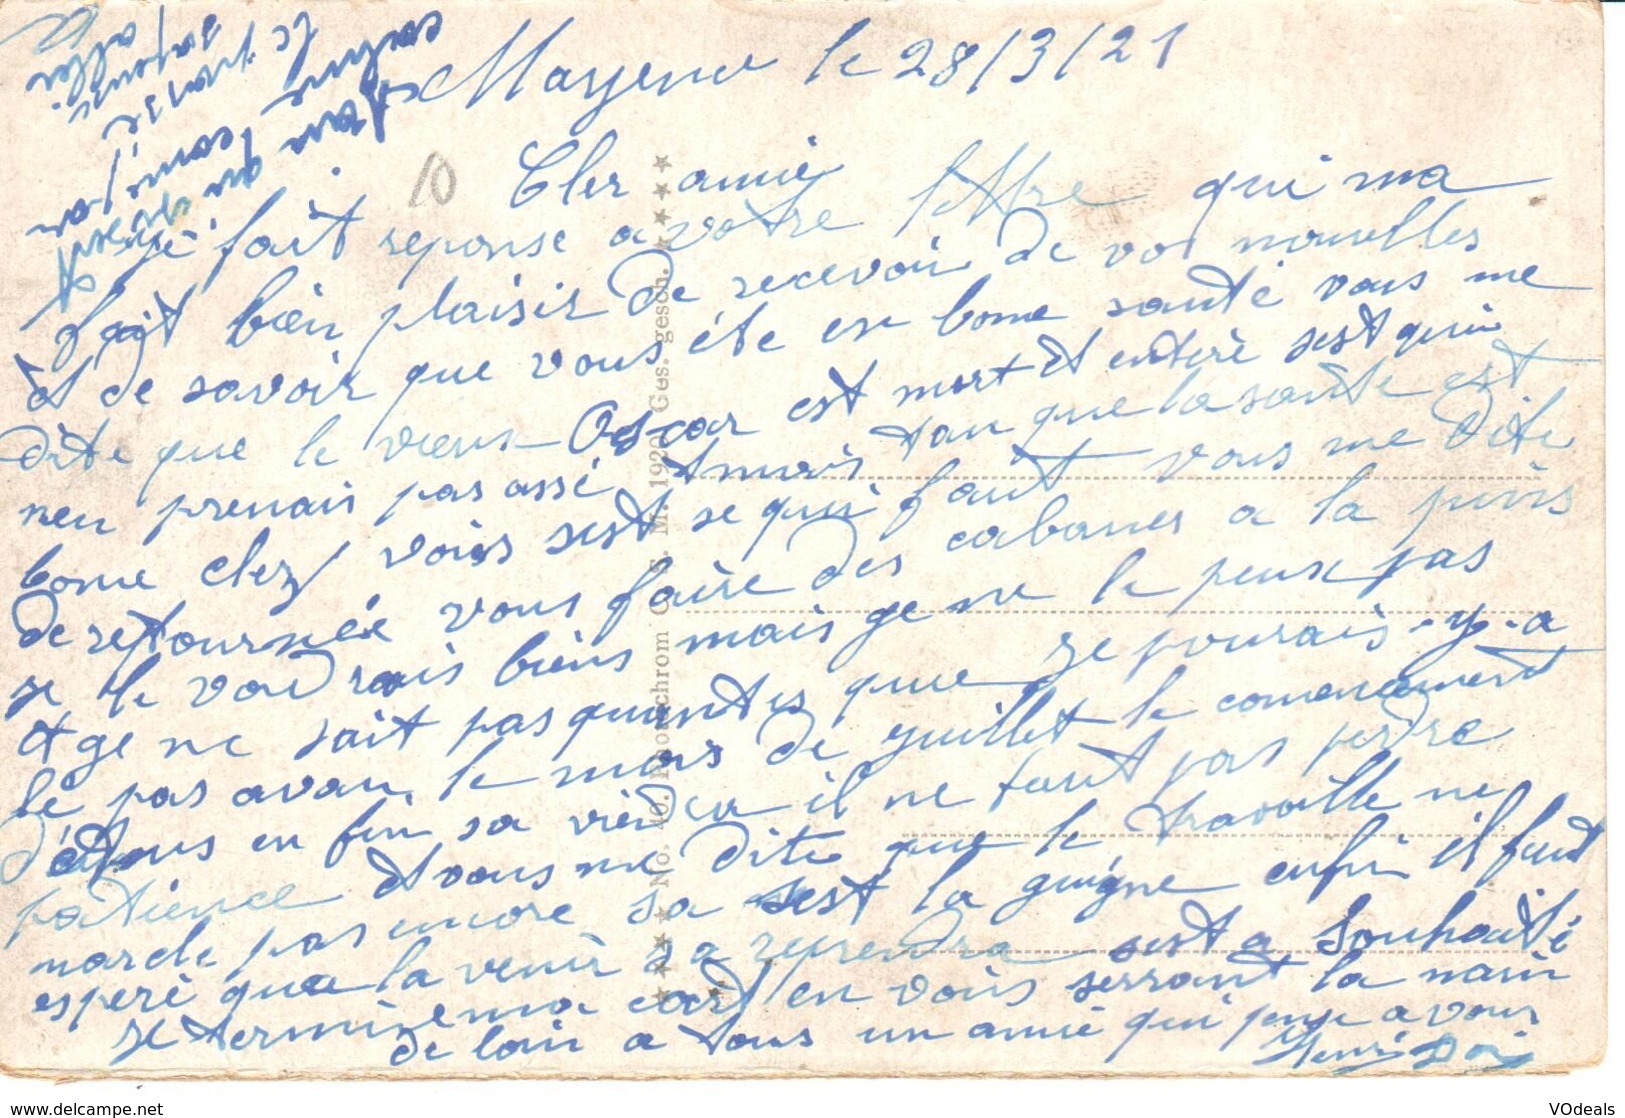 Mayence le 28/3/21
10
Cher amie
je fait reponse a votre lettre qui ma
fait bien plaisir de recevoir de vos nouvelles
et de savoir que vous éte en bone santé vous me
dite que le vieux Oscar est mort et enteré sest quin
nen prenais pas assé mais tan que la sante est
bone chez vous sest se quil faut vous me dite
de retournée vous faire des cabanes a la puris
je le voudrais biens mais ge ne le peux pas
et ge ne sait pas quantes que je pourais y a
lé pas avan le mois de juillet le comencement
daous en fin sa viendra il ne faut pas perdre
patience et vous me dite que le travaille ne
marche pas encore sa sest la guigne enfin il faut
esperé que la venir sa reprendra sest a souhaité
je termine ma cart en vous serrant la main
de loin a tous un amie qui pense a vous
Henri
No. 40. Photochrom C. S. M. 1920. Ges. gesch.
VOdeals
www.delcampe.net